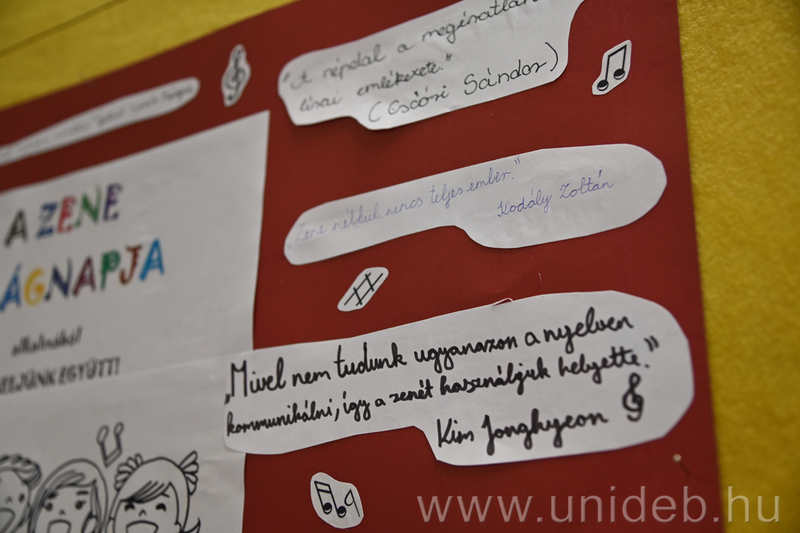 "A népdal a megíratlan
lírai emlékezete."
(Csoóri Sándor)
A ZENE
ÁGNAPJA
alkalmából
ELJÜNK EGYÜTT!
„Zene nélkül nincs teljes ember."
Kodály Zoltán
„Mivel nem tudunk ugyanazon a nyelven
kommunikálni, így a zenét használjuk helyette."
Kim Jonghyeon
www.unideb.hu